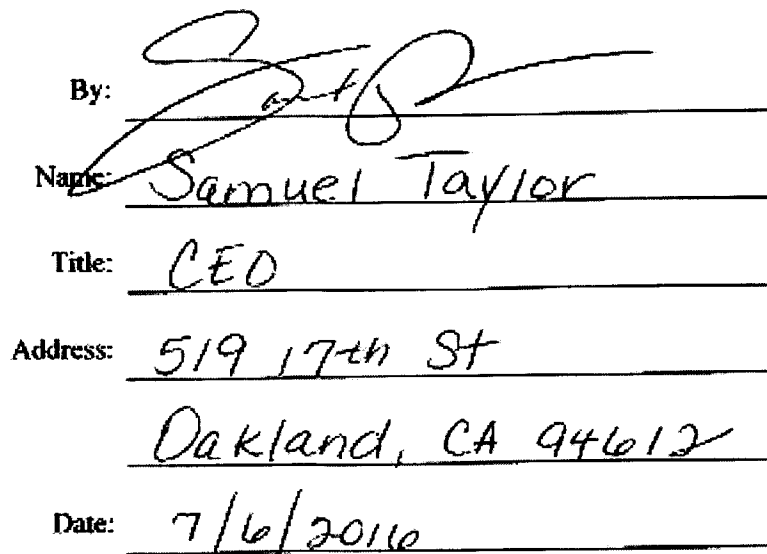 By:
Name: Samuel Taylor
Title: CEO
Address: 519 17th St
Oakland, CA 94612
Date: 7/6/2016